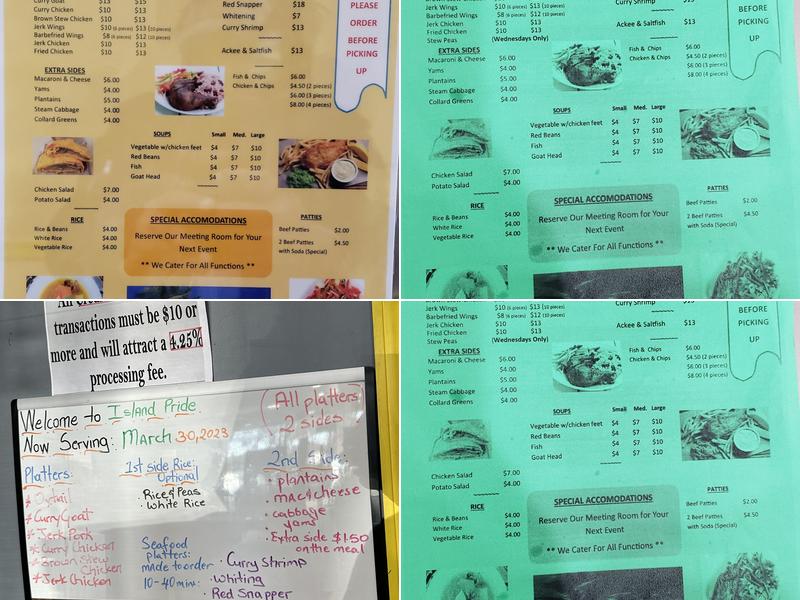 Curry Goat $13 $15
Curry Chicken $10 $13
Brown Stew Chicken $10 $13
Jerk Wings $10 (6 pieces) $13 (10 pieces)
Barbefried Wings $8 (6 pieces) $12 (10 pieces)
Jerk Chicken $10 $13
Fried Chicken $10 $13
Red Snapper $18
Whitening $7
Curry Shrimp $13
Ackee & Saltfish $13
PLEASE
ORDER
BEFORE
PICKING
UP
EXTRA SIDES
Macaroni & Cheese $6.00
Yams $4.00
Plantains $5.00
Steam Cabbage $4.00
Collard Greens $4.00
Fish & Chips $6.00
Chicken & Chips $4.50 (2 pieces)
$6.00 (3 pieces)
$8.00 (4 pieces)
SOUPS Small Med. Large
Vegetable w/chicken feet $4 $7 $10
Red Beans $4 $7 $10
Fish $4 $7 $10
Goat Head $4 $7 $10
Chicken Salad $7.00
Potato Salad $4.00
RICE
Rice & Beans $4.00
White Rice $4.00
Vegetable Rice $4.00
SPECIAL ACCOMODATIONS
Reserve Our Meeting Room for Your
Next Event
** We Cater For All Functions **
PATTIES
Beef Patties $2.00
2 Beef Patties $4.50
with Soda (Special)
Jerk Wings $10 (6 pieces) $13 (10 pieces)
Barbefried Wings $8 (6 pieces) $12 (10 pieces)
Jerk Chicken $10 $13
Fried Chicken $10 $13
Stew Peas (Wednesdays Only)
Curry Shrimp $13
Ackee & Saltfish $13
BEFORE
PICKING
UP
EXTRA SIDES
Macaroni & Cheese $6.00
Yams $4.00
Plantains $5.00
Steam Cabbage $4.00
Collard Greens $4.00
Fish & Chips $6.00
Chicken & Chips $4.50 (2 pieces)
$6.00 (3 pieces)
$8.00 (4 pieces)
SOUPS Small Med. Large
Vegetable w/chicken feet $4 $7 $10
Red Beans $4 $7 $10
Fish $4 $7 $10
Goat Head $4 $7 $10
Chicken Salad $7.00
Potato Salad $4.00
RICE
Rice & Beans $4.00
White Rice $4.00
Vegetable Rice $4.00
SPECIAL ACCOMODATIONS
Reserve Our Meeting Room for Your
Next Event
** We Cater For All Functions **
PATTIES
Beef Patties $2.00
2 Beef Patties $4.50
with Soda (Special)
transactions must be $10 or
more and will attract a 4.25%
processing fee.
Welcome to Island Pride
Now Serving: March 30, 2023
All platters
2 sides
Platters:
Oxtail
Curry Goat
Jerk Pork
Curry Chicken
Brown Stew
Chicken
Jerk Chicken
1st side Rice:
Optional
Rice & Peas
White Rice
Seafood
platters:
made to order
10-40 mins:
2nd Side:
plantains
mac & cheese
cabbage
yams
Extra side $1.50
on the meal
Curry Shrimp
Whiting
Red Snapper
Jerk Wings $10 (6 pieces) $13 (10 pieces)
Barbefried Wings $8 (6 pieces) $12 (10 pieces)
Jerk Chicken $10 $13
Fried Chicken $10 $13
Stew Peas (Wednesdays Only)
Curry Shrimp
Ackee & Saltfish $13
BEFORE
PICKING
UP
EXTRA SIDES
Macaroni & Cheese $6.00
Yams $4.00
Plantains $5.00
Steam Cabbage $4.00
Collard Greens $4.00
Fish & Chips $6.00
Chicken & Chips $4.50 (2 pieces)
$6.00 (3 pieces)
$8.00 (4 pieces)
SOUPS Small Med. Large
Vegetable w/chicken feet $4 $7 $10
Red Beans $4 $7 $10
Fish $4 $7 $10
Goat Head $4 $7 $10
Chicken Salad $7.00
Potato Salad $4.00
RICE
Rice & Beans $4.00
White Rice $4.00
Vegetable Rice $4.00
SPECIAL ACCOMODATIONS
Reserve Our Meeting Room for Your
Next Event
** We Cater For All Functions **
PATTIES
Beef Patties $2.00
2 Beef Patties $4.50
with Soda (Special)